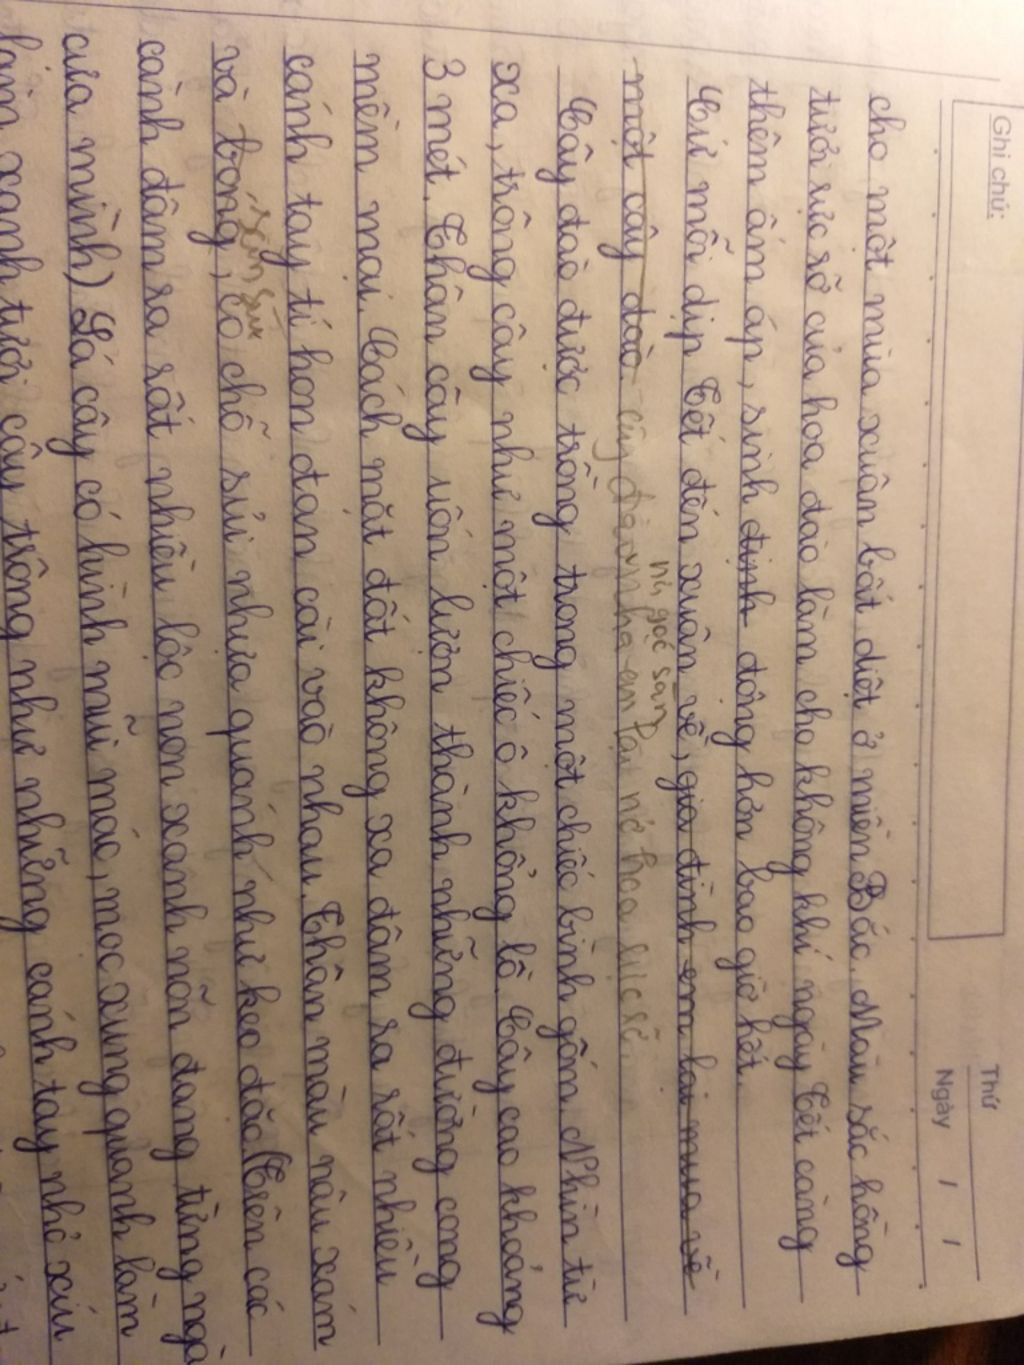 Ghi chú:
Thứ
Ngày / /
cho một mùa xuân bất diệt ở miền Bắc. Màu sắc hồng
tươi rực rỡ của hoa đào làm cho không khí ngày Tết càng
thêm ấm áp, sinh định động hơn bao giờ hết.
Cứ mỗi dịp Tết đến xuân về, gia đình em lại mua về
nú góc sân
một cây đào. cây đào nhà em lại nở hoa rực rỡ.
Cây đào được trồng trong một chiếc bình gốm. Nhìn từ
xa, trông cây như một chiếc ô khổng lồ. Cây cao khoảng
3 mét. Thân cây uốn lượn thành những đường cong
mềm mại. Cách mặt đất không xa đâm ra rất nhiều
cánh tay tí hon đan cài vào nhau. Thân màu nâu xám
sần sùi
và bóng, có chỗ sủi nhựa quánh như keo đặc (Trên các
cành đâm ra rất nhiều lộc non xanh nõn đang từng ngà
của mình) Lá cây có hình mũi mác, mọc xung quanh làm
xanh tươi cây trông như những cánh tay nhỏ xíu